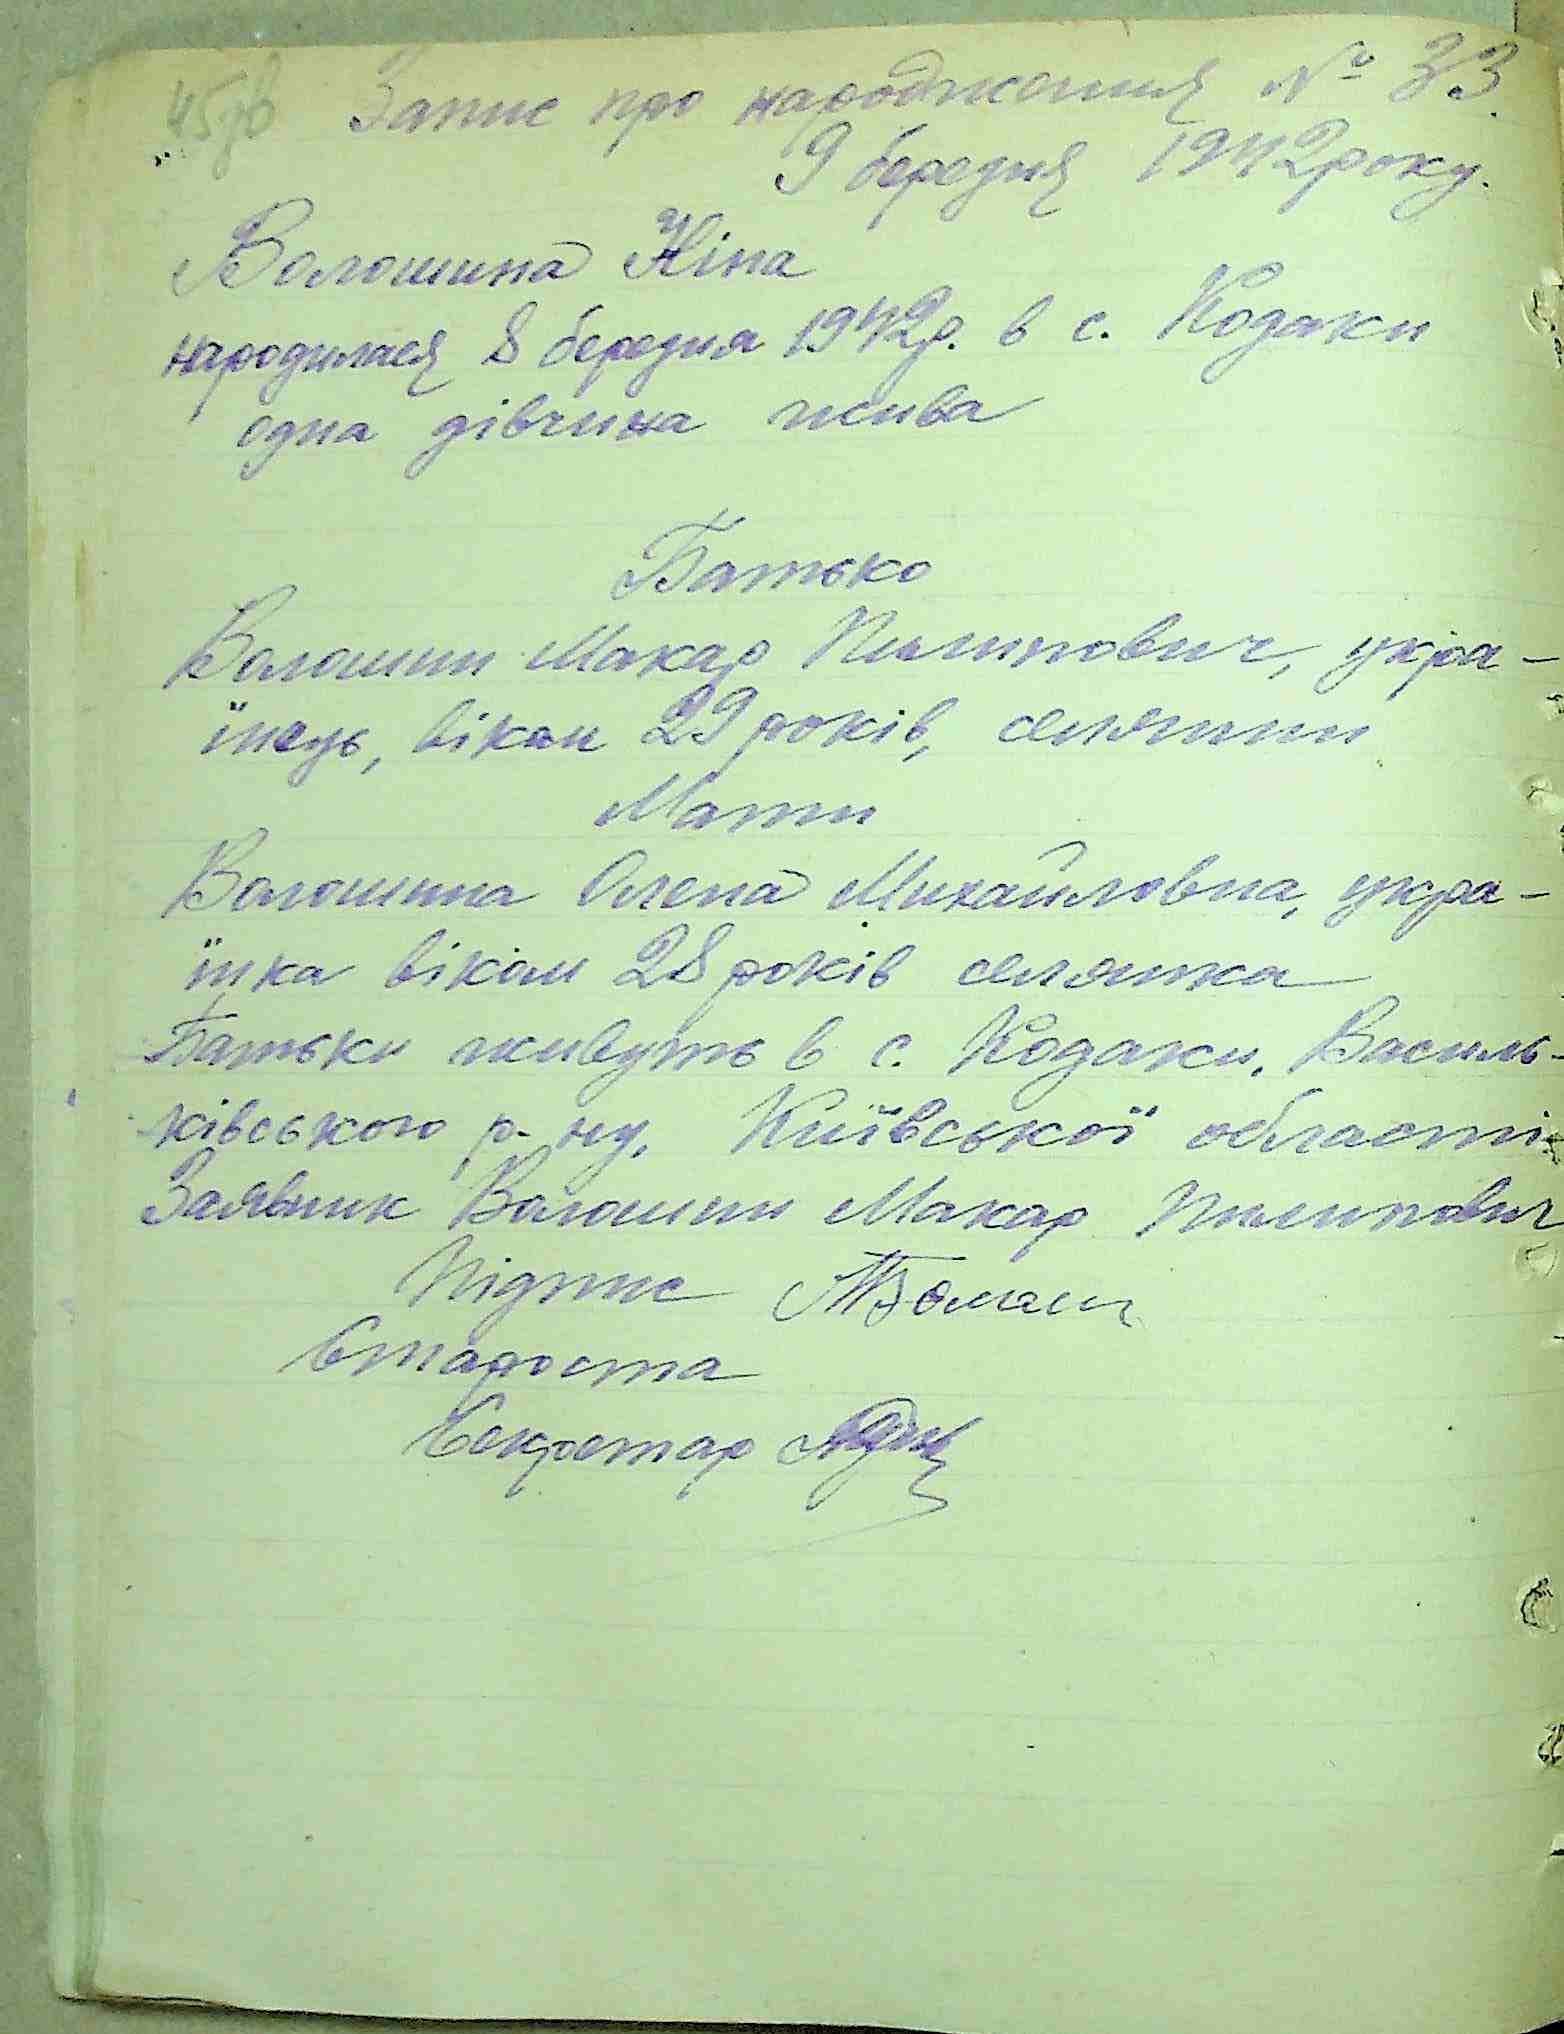 45зв
Запис про народження № 33.
9 березня 1942 року.
Волошина Ніна
народилася 8 березня 1942 р. в с. Кодаки
одна дівчина жива
Батько
Волошин Макар Пилипович, укра-
їнець, віком 29 років, селянин
Мати
Волошина Олена Михайловна, укра-
їнка віком 28 років селянка
Батьки живуть в с. Кодаки, Василь-
ківського р-ну, Київської області
Заявник Волошин Макар Пилипович
Підпис
Староста
Секретар